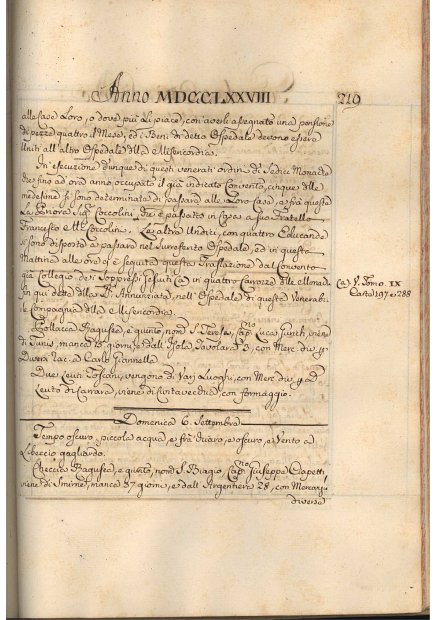 Anno MDCCLXXVIII 219
alle Case Loro, o dove più li piace, con averli asegnato una pensione
di pezze quattro il Mese, ed i Beni di detto Ospedale devono essere
Uniti all'altro Ospedale della Misericordia.
In' esecuzione dunque di questi venerati ordini di Sedici Monache
che sino ad ora anno occupato il già indicato Convento, cinque delle
medesime si sono determinate di passare alle Loro Case, e frà queste
La Signora Coccolini che è passata in Casa a suo Fratello
Francesco Coccolini. Le altre Undici, con quattro Educande
si sono disposte a passare nel Ospedale, ed in questa
Mattina alle ore 9 è seguita questa Traslazione dal Convento
già Collegio dei Soppressi Gesuiti (a) in quattro Carrozze
fin qui detto della SS. Annunziata, nell' Ospedale di questa Venerabi=
le Compagnia della Misericordia.
(a) V. Tomo IX
Carte 197 e 288
Pollacca Ragusea, e quinto, nom.ta S. Teresa, Cap.no Luca viene
di Tunis, manca 18 giorni, e dall' Isola 3, con Merc. div. p
Diversi, rac. a Carlo Giannelli.
Due Leuti Toscani, vengono di Varj Luoghi, con Merc. div. p, ed
Leuto di Carrara, viene di Civitavecchia, con formaggio.
Domenica 6. Settembre
Tempo oscuro, piccola acqua, e frà chiaro, e oscuro, e Vento a
Libeccio gagliardo.
Checcia Ragusea, e quinto, nom.ta S. Biagio, Cap.no Giuseppe
viene di Smirne, manca 87 giorni, e dall' Argentiera 28, con Mercanzie
diverse